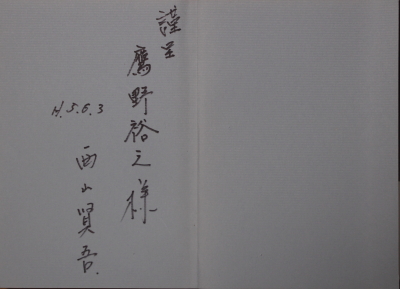 謹呈
鷹野裕之様
H.5.6.3
西山賢吾.